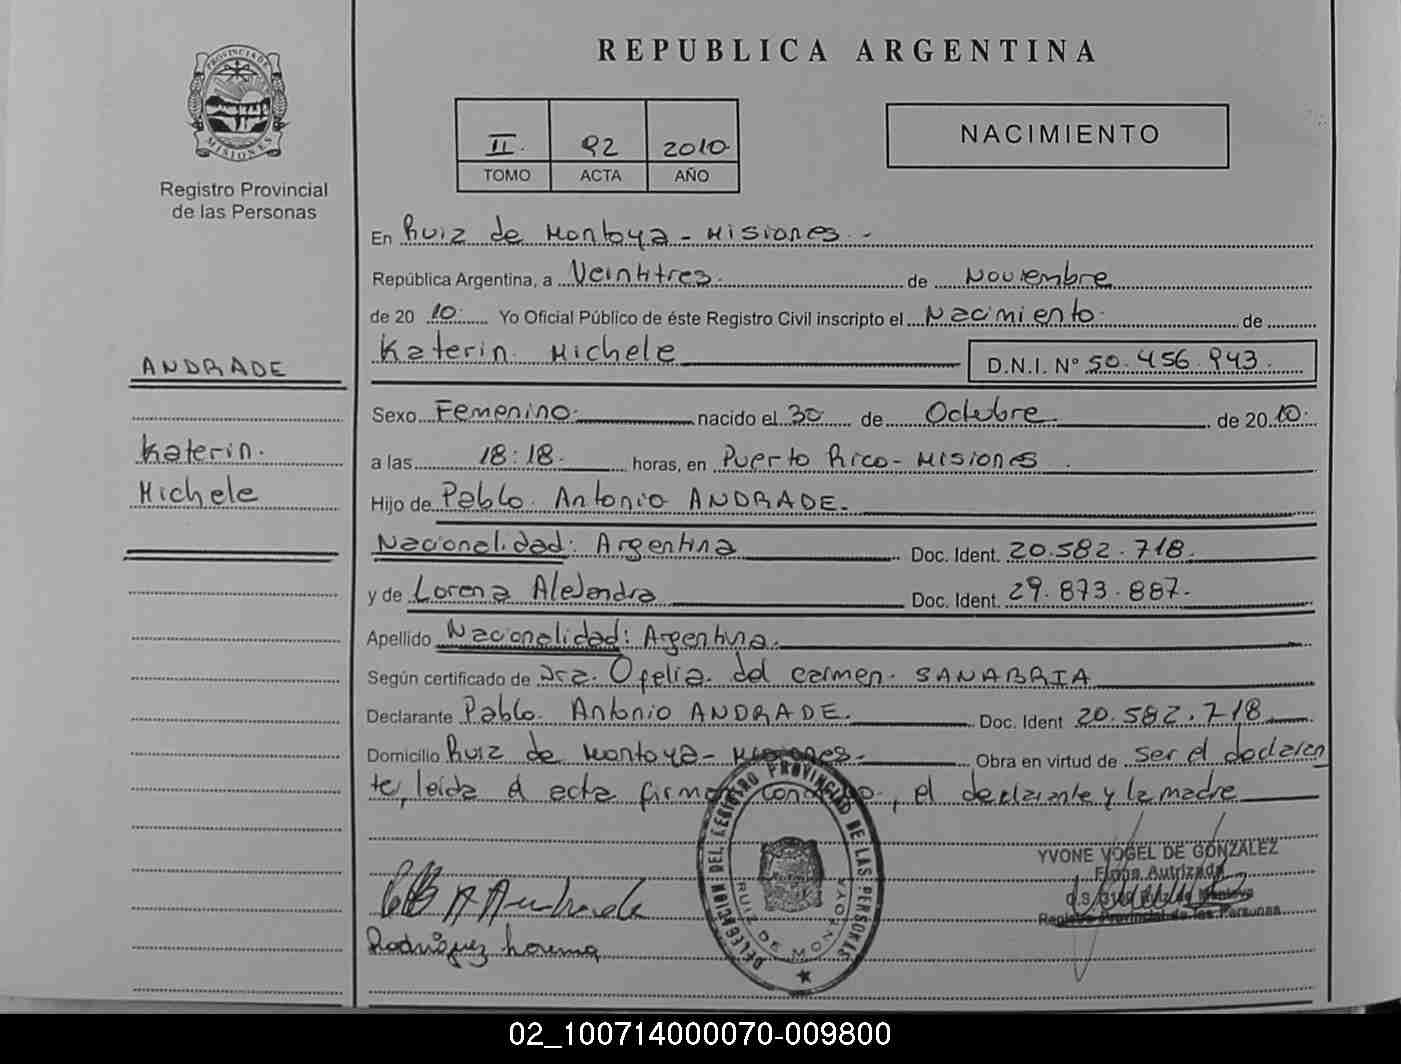 REPUBLICA ARGENTINA
PROVINCIA DE MISIONES
Registro Provincial
de las Personas
II. 92 2010
TOMO ACTA AÑO
NACIMIENTO
En Ruiz de Montoya - Misiones -
República Argentina, a Veintitres. de Noviembre
de 20 10. Yo Oficial Público de éste Registro Civil inscripto el Nacimiento. de
Katerin. Michele D.N.I. Nº 50.456.943.
ANDRADE
Katerin.
Michele
Sexo Femenino. nacido el 30 de Octubre. de 20 10.
a las 18:18. horas, en Puerto Rico - Misiones.
Hijo de Pablo Antonio ANDRADE.
Nacionalidad: Argentina Doc. Ident. 20.582.718.
y de Lorena Alejandra Doc. Ident. 29.873.887.
Apellido Nacionalidad: Argentina.
Según certificado de Dra. Ofelia del carmen. SANABRIA
Declarante Pablo Antonio ANDRADE. Doc. Ident 20.582.718
Domicilio Ruiz de Montoya - Misiones. Obra en virtud de ser el declaran
te, leída el acta firman conmigo, el declarante y la madre
DELEGACION DEL REGISTRO PROVINCIAL DE LAS PERSONAS
RUIZ DE MONTOYA
YVONE VOGEL DE GONZALEZ
Firma Autrizada
Ruiz de Montoya
Registro Provincial de las Personas
Rodriguez Lorena
02_100714000070-009800